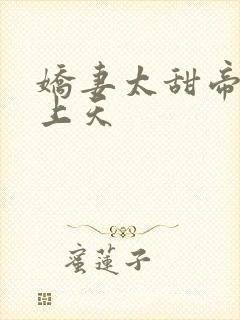 嬌妻太甜帝
上天
蜜蓮子